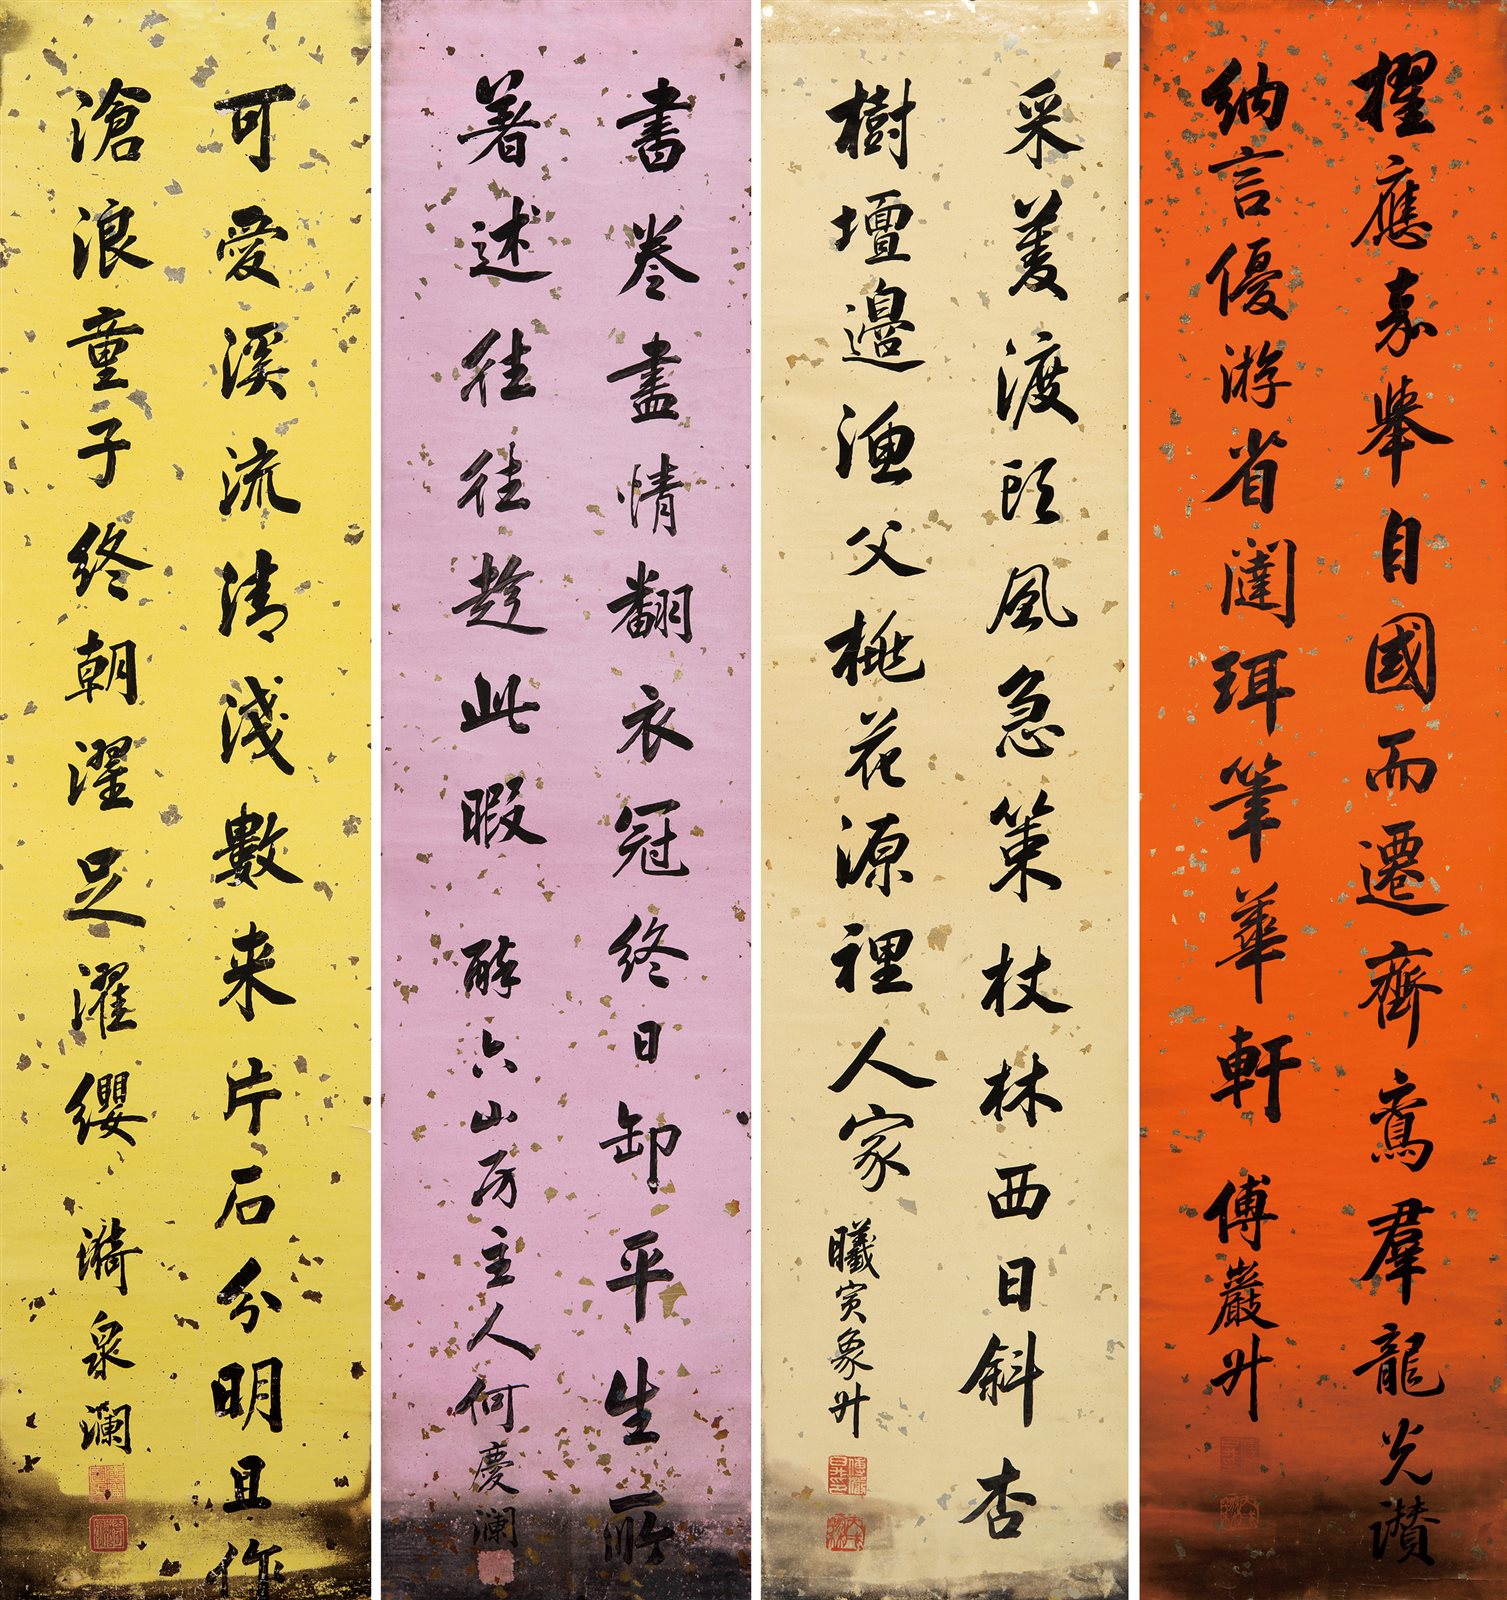 擢應嘉舉自國而遷齊鸞羣龍光讃
納言優游省闥珥筆華軒 傅巖升
采菱渡頭風急策杖林西日斜杏
樹壇邊漁父桃花源裡人家 曦寅象升
書卷盡情翻衣冠終日卸平生所
著述往往趁此暇 醉六山房主人何慶瀾
可愛溪流清淺數来片石分明且作
滄浪童子終朝濯足濯纓 漪泉瀾